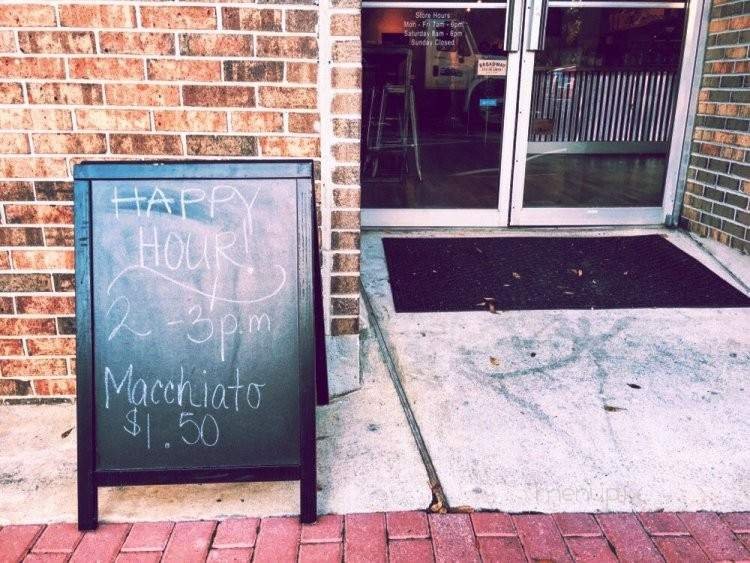 Store Hours
Mon - Fri 7am - 9pm
Saturday 8am - 6pm
Sunday Closed
BROADWAY
HAPPY
HOUR!
2 - 3p.m
Macchiato
$1.50
menupix